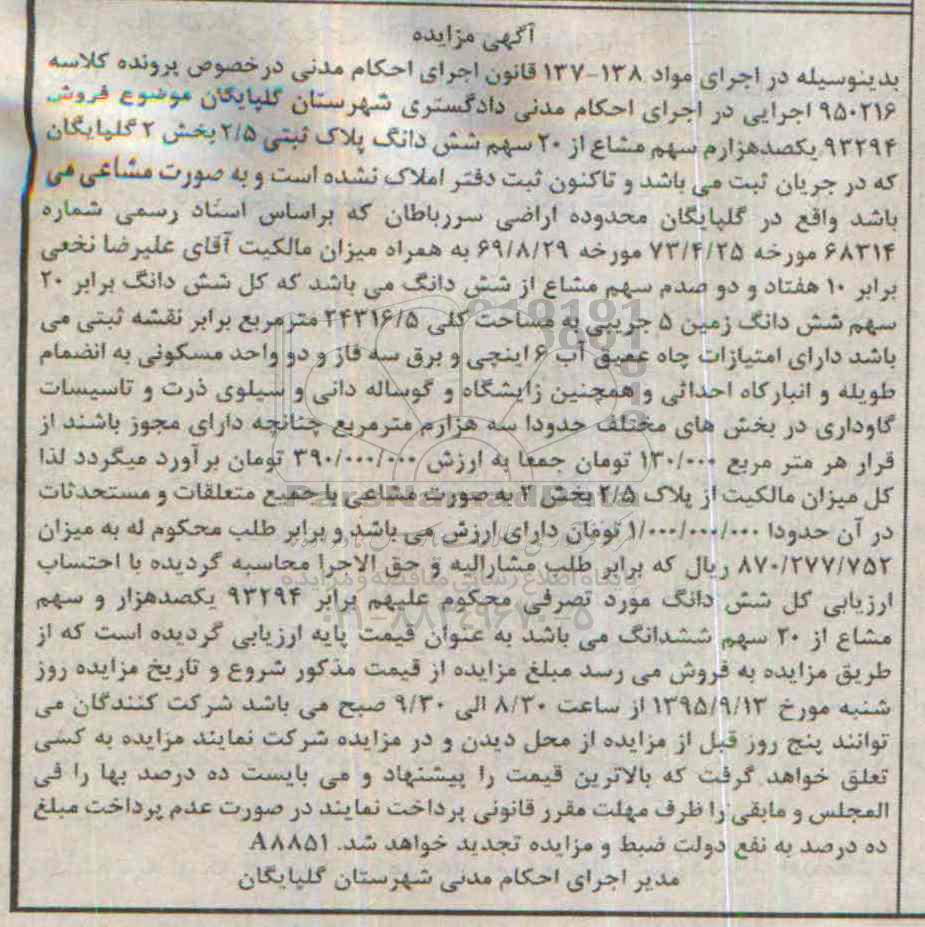 آگهی مزایده
بدینوسیله در اجرای مواد ۱۳۸-۱۳۷ قانون اجرای احکام مدنی درخصوص پرونده کلاسه
۹۵۰۲۱۶ اجرایی در اجرای احکام مدنی دادگستری شهرستان گلپایگان موضوع فروش
۹۳۲۹۴ یکصدهزارم سهم مشاع از ۲۰ سهم شش دانگ پلاک ثبتی ۲/۵ بخش ۲ گلپایگان
که در جریان ثبت می باشد و تاکنون ثبت دفتر املاک نشده است و به صورت مشاعی می
باشد واقع در گلپایگان محدوده اراضی سررباطان که براساس اسناد رسمی شماره
۶۸۳۱۴ مورخه ۷۳/۴/۲۵ مورخه ۶۹/۸/۲۹ به همراه میزان مالکیت آقای علیرضا نخعی
برابر ۱۰ هفتاد و دو صدم سهم مشاع از شش دانگ می باشد که کل شش دانگ برابر ۲۰
سهم شش دانگ زمین ۵ جریبی به مساحت کلی ۲۴۳۱۶/۵ مترمربع برابر نقشه ثبتی می
باشد دارای امتیازات چاه عمیق آب ۶ اینچی و برق سه فاز و دو واحد مسکونی به انضمام
طویله و انبارکاه احداثی و همچنین زایشگاه و گوساله دانی و سیلوی ذرت و تاسیسات
گاوداری در بخش های مختلف حدودا سه هزارم مترمربع چنانچه دارای مجوز باشند از
قرار هر متر مربع ۱۳۰/۰۰۰ تومان جمعا به ارزش ۳۹۰/۰۰۰/۰۰۰ تومان برآورد میگردد لذا
کل میزان مالکیت از پلاک ۲/۵ بخش ۲ به صورت مشاعی با جمیع متعلقات و مستحدثات
در آن حدودا ۱/۰۰۰/۰۰۰/۰۰۰ تومان دارای ارزش می باشد و برابر طلب محکوم له به میزان
۸۷۰/۲۷۷/۷۵۲ ریال که برابر طلب مشارالیه و حق الاجرا محاسبه گردیده با احتساب
ارزیابی کل شش دانگ مورد تصرفی محکوم علیهم برابر ۹۳۲۹۴ یکصدهزار و سهم
مشاع از ۲۰ سهم ششدانگ می باشد به عنوان قیمت پایه ارزیابی گردیده است که از
طریق مزایده به فروش می رسد مبلغ مزایده از قیمت مذکور شروع و تاریخ مزایده روز
شنبه مورخ ۱۳۹۵/۹/۱۳ از ساعت ۸/۳۰ الی ۹/۳۰ صبح می باشد شرکت کنندگان می
توانند پنج روز قبل از مزایده از محل دیدن و در مزایده شرکت نمایند مزایده به کسی
تعلق خواهد گرفت که بالاترین قیمت را پیشنهاد و می بایست ده درصد بها را فی
المجلس و مابقی را ظرف مهلت مقرر قانونی پرداخت نمایند در صورت عدم پرداخت مبلغ
ده درصد به نفع دولت ضبط و مزایده تجدید خواهد شد. A۸۸۵۱
مدیر اجرای احکام مدنی شهرستان گلپایگان
پایگاه اطلاع رسانی مناقصه و مزایده
۰۲۱-۸۸۳۴۹۶۷۰-۵